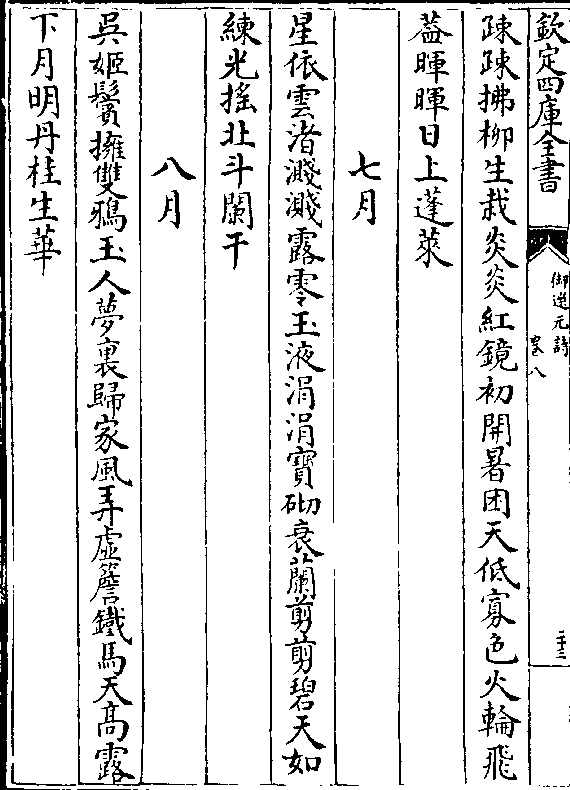 欽定四庫全書
御選元詩
卷八
二十三
疎疎拂柳生栽炎炎紅鏡初開暑困天低寡色火輪飛
葢暉暉日上蓬萊
七月
星依雲渚濺濺露零玉液涓涓寶砌衰蘭剪剪碧天如
練光搖北斗闌干
八月
吳姬鬢擁雙鴉玉人夢裏歸家風弄虛簷鐵馬天高露
下月明丹桂生華